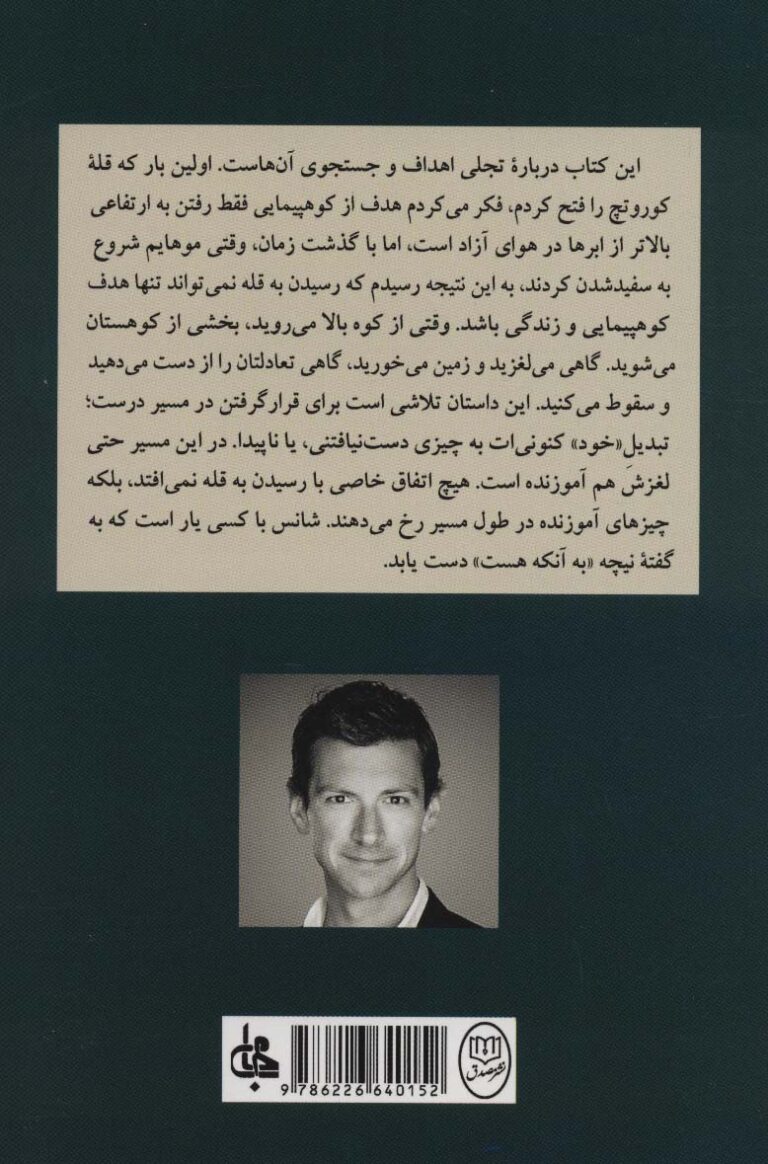 این کتاب دربارهٔ تجلی اهداف و جستجوی آن‌هاست. اولین بار که قلهٔ
کوروتچ را فتح کردم، فکر می‌کردم هدف از کوهپیمایی فقط رفتن به ارتفاعی
بالاتر از ابرها در هوای آزاد است، اما با گذشت زمان، وقتی موهایم شروع
به سفیدشدن کردند، به این نتیجه رسیدم که رسیدن به قله نمی‌تواند تنها هدف
کوهپیمایی و زندگی باشد. وقتی از کوه بالا می‌روید، بخشی از کوهستان
می‌شوید. گاهی می‌لغزید و زمین می‌خورید، گاهی تعادلتان را از دست می‌دهید
و سقوط می‌کنید. این داستان تلاشی است برای قرارگرفتن در مسیر درست؛
تبدیلِ «خود» کنونی‌ات به چیزی دست‌نیافتنی، یا ناپیدا. در این مسیر حتی
لغزشَ هم آموزنده است. هیچ اتفاق خاصی با رسیدن به قله نمی‌افتد، بلکه
چیزهای آموزنده در طول مسیر رخ می‌دهند. شانس با کسی یار است که به
گفتهٔ نیچه «به آنکه هست» دست یابد.
جامی
9 786226 640152
نشر مصدق